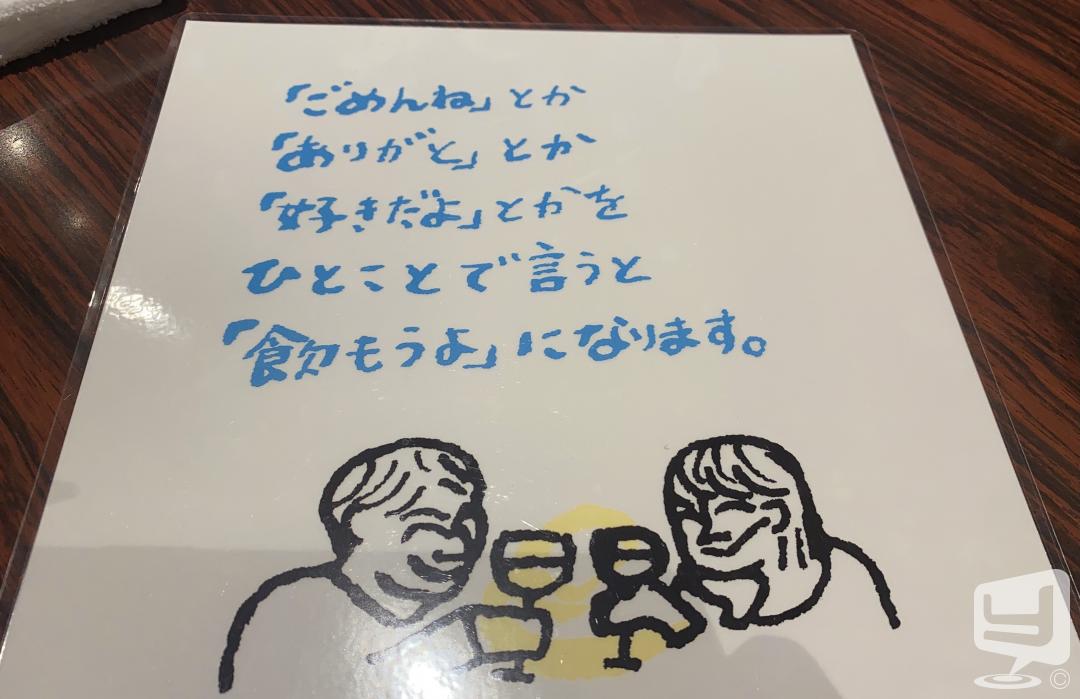 「ごめんね」とか
「ありがと」とか
「好きだよ」とかを
ひとことで言うと
「飲もうよ」になります。
©